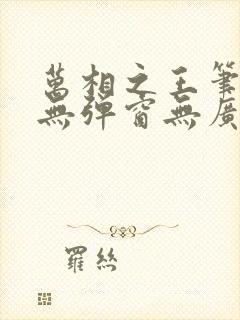 萬相之王筆
無彈窗無廣
羅絲